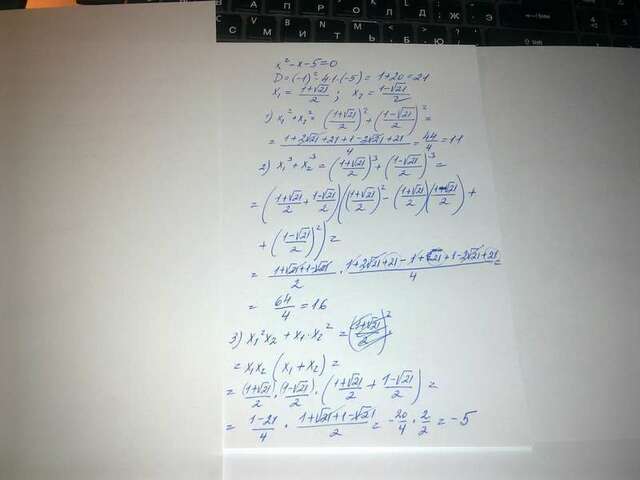 x²-x-5=0
D=(-1)²-4·1·(-5)=1+20=21
x₁=(1+√21)/2; x₂=(1-√21)/2
1) x₁²+x₂²=((1+√21)/2)²+((1-√21)/2)²=
=(1+2√21+21+1-2√21+21)/4=44/4=11
2) x₁³+x₂³=((1+√21)/2)³+((1-√21)/2)³=
=((1+√21)/2+(1-√21)/2)(((1+√21)/2)²-((1+√21)/2)((1-√21)/2)+
+((1-√21)/2)²)=
=(1+√21+1-√21)/2·(1+2√21+21-1+21+1-2√21+21)/4=
=64/4=16
3) x₁²x₂+x₁·x₂²=
=x₁x₂(x₁+x₂)=
=(1+√21)/2·(1-√21)/2·((1+√21)/2+(1-√21)/2)=
=(1-21)/4·(1+√21+1-√21)/2=-20/4·2/2=-5